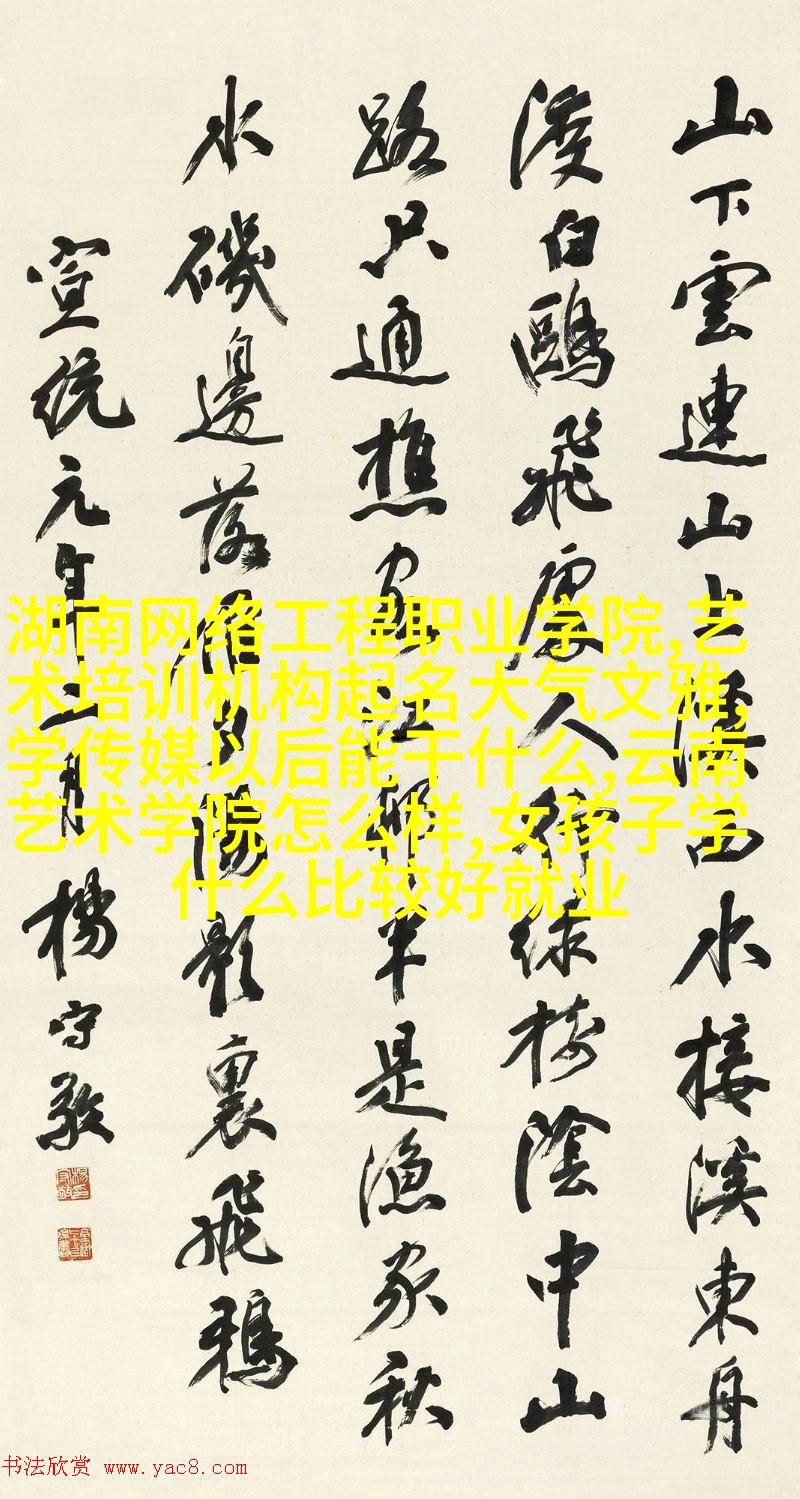 山下雲連山上溪西水接溪東舟
渡白鷗飛處人行綠樹陰中山
路只通樵客江邨半是漁家秋
水磯邊落雁夕陽影裏飛鴉
宣統元年二月楊守敬
湖南网络工程职业学院,艺
术培训机构起名大气文雅,
学传媒以后能干什么,云南
艺术学院怎么样,女孩子学
什么比较好就业
书法欣赏 www.yac8.com